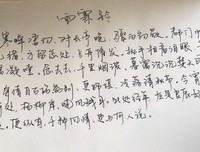 雨霖铃
寒蝉凄切,对长亭晚,骤雨初歇。都门
绪,方留恋处,兰舟催发。执手相看泪眼
语凝噎。念去去,千里烟波,暮霭沉沉楚天
情自古伤离别,更那堪,冷落清秋节。今宵
何处,杨柳岸,晓风残月。此去经年,应是良辰好
设。便纵有,千种风情,更与何人说。